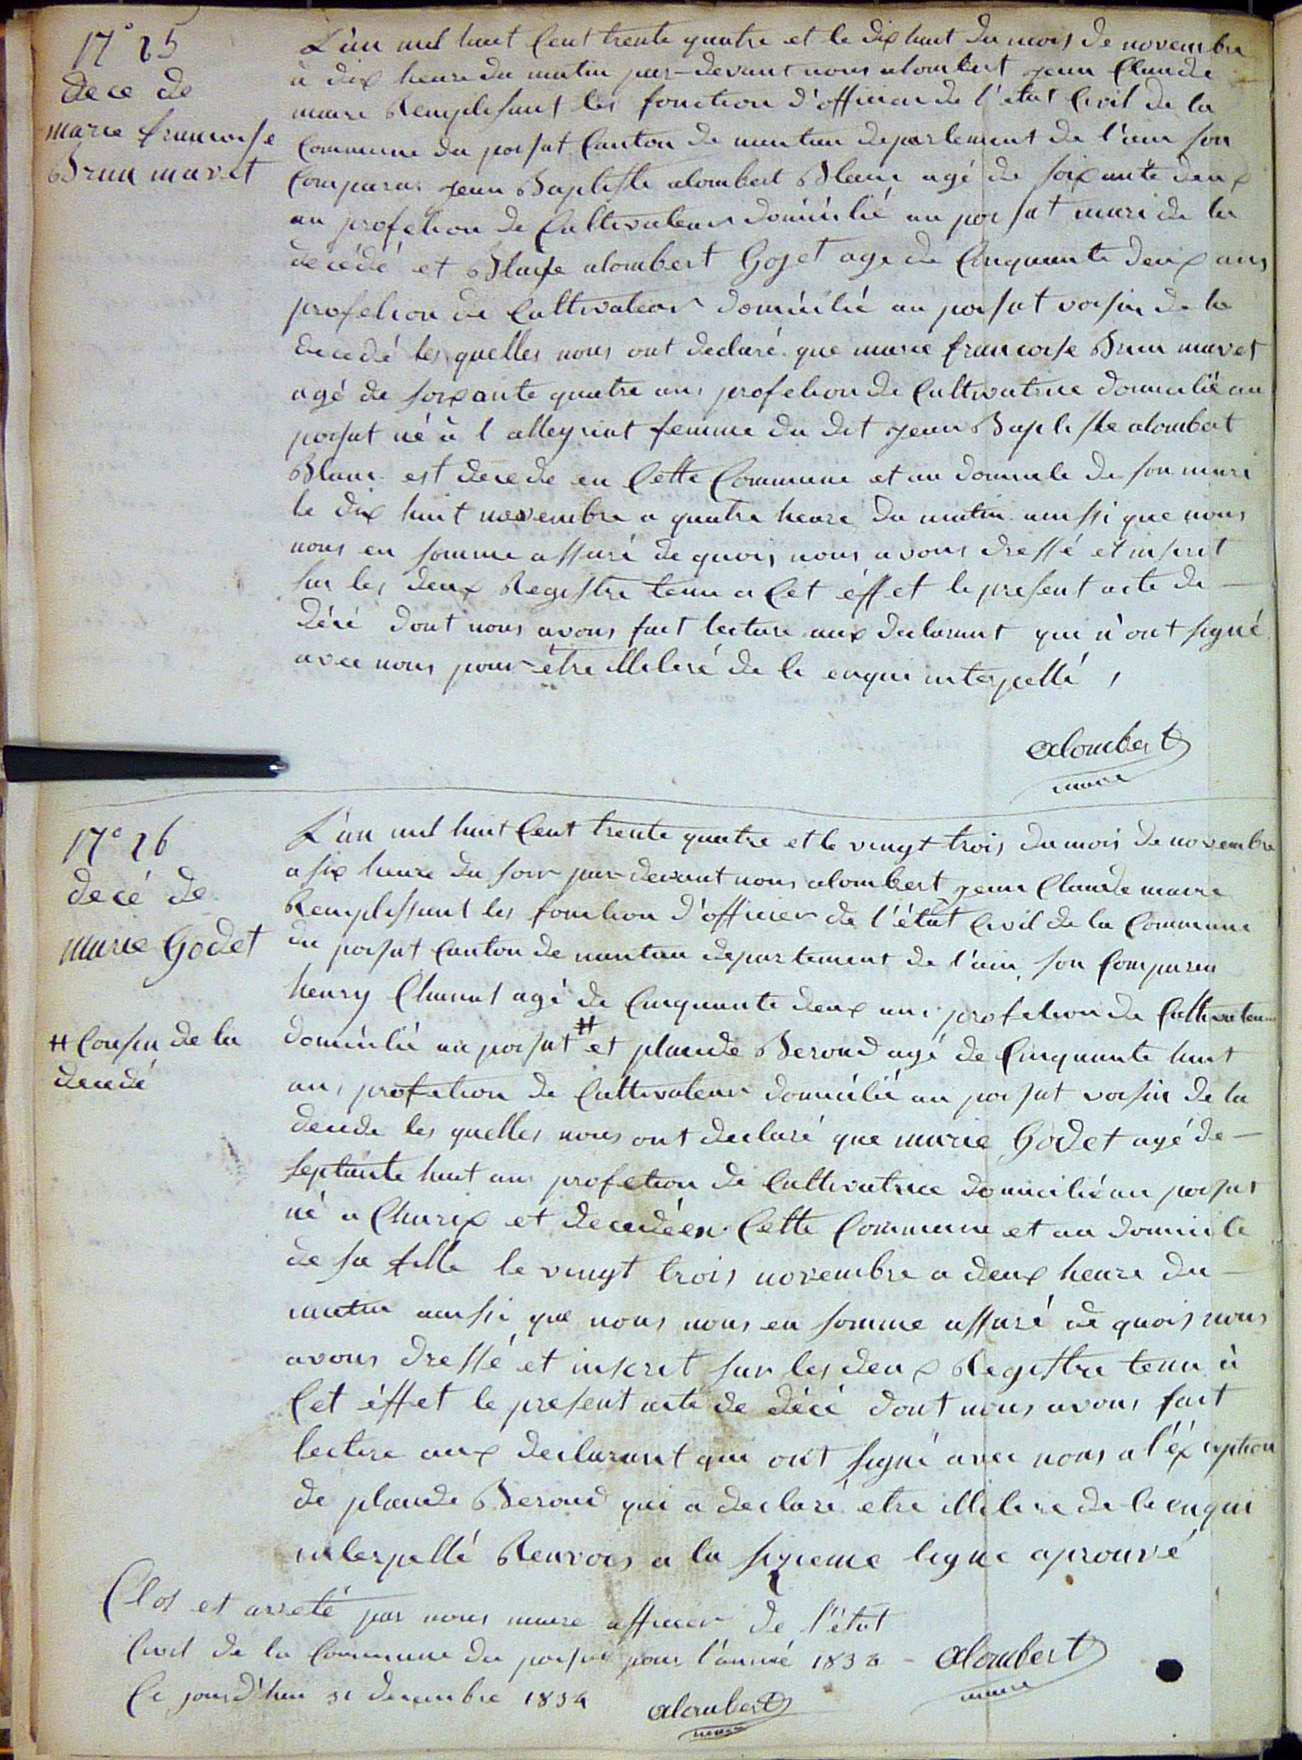 N° 25
dece de
marie francoise
Brun mavet
L'an mil huit Cent trente quatre et le dix huit du mois de novembre
à dix heure du matin par-devant nous alombert jean Claude
maire Remplisant les fonction d'officier de l'état Civil de la
Commune du poisat Canton de nantua departement de l'ain son
Comparus jean Baptiste alombert Blanc agé de soixante deux
an profetion de Cultivateur domicilié au poisat mari de la
décédé et Blaise alombert Goget age de Cinquante deux ans
profetion de Cultivateur domicilié au poisat voisin de la
decedé les quelles nous ont declaré que marie francoise Brun mavet
agé de soixante quatre ans profetion de Cultivatrice domicilié au
poisat né à l alleyriat femme du dit jean Baptiste alombert
Blanc est decede en Cette Commune et au domicile de son mari
le dix huit novembre a quatre heure du matin ainssi que nous
nous en somme assuré de quois nous avons dressé et inscrit
sur les deux Registre tenu a Cet éffet le present acte de
décé dont nous avons fait lecture aux declarant qui n'ont signé
avec nous pour être illiteré de le enqui interpellé,
alombert
maire
N° 26
decé de
marie Godet
# Cousin de la
decedé
L'an mil huit Cent trente quatre et le vingt trois du mois de novembre
a six heure du soir par devant nous alombert jean Claude maire
Remplissant les fonction d'officier de l'état Civil de la Commune
du poisat Canton de nantua departement de l'ain son Comparu
henry Chanut agé de Cinquante deux ans profetion de Cultivateur
domicilié au poisat # et plaude Beroud agé de Cinquante huit
ans profetion de Cultivateur domicilié au poisat voisin de la
decede les quelles nous ont declaré que marie Godet agé de
septante huit ans profetion de Cultivatrice domicilié au poisat
né a Charix et decedé en Cette Commune et au domicile
de sa fille le vingt trois novembre a deux heure du
matin ainssi que nous nous en somme assuré de quois nous
avons dressé et inscrit sur les deux Registre tenu à
Cet éffet le present acte de décé dont nous avons fait
lecture aux declarant qui ont signé avec nous a l'éxception
de plaude Beroud qui a declaré etre illitere de le enqui
interpellé Renvois a la sizieme ligne aprouvé
Clos et arreté par nous maire officier de l'état
Civil de la Commune du poisat pour l'année 1834 - alombert
maire
Ce jourd'hui 31 decembre 1834 alombert
maire